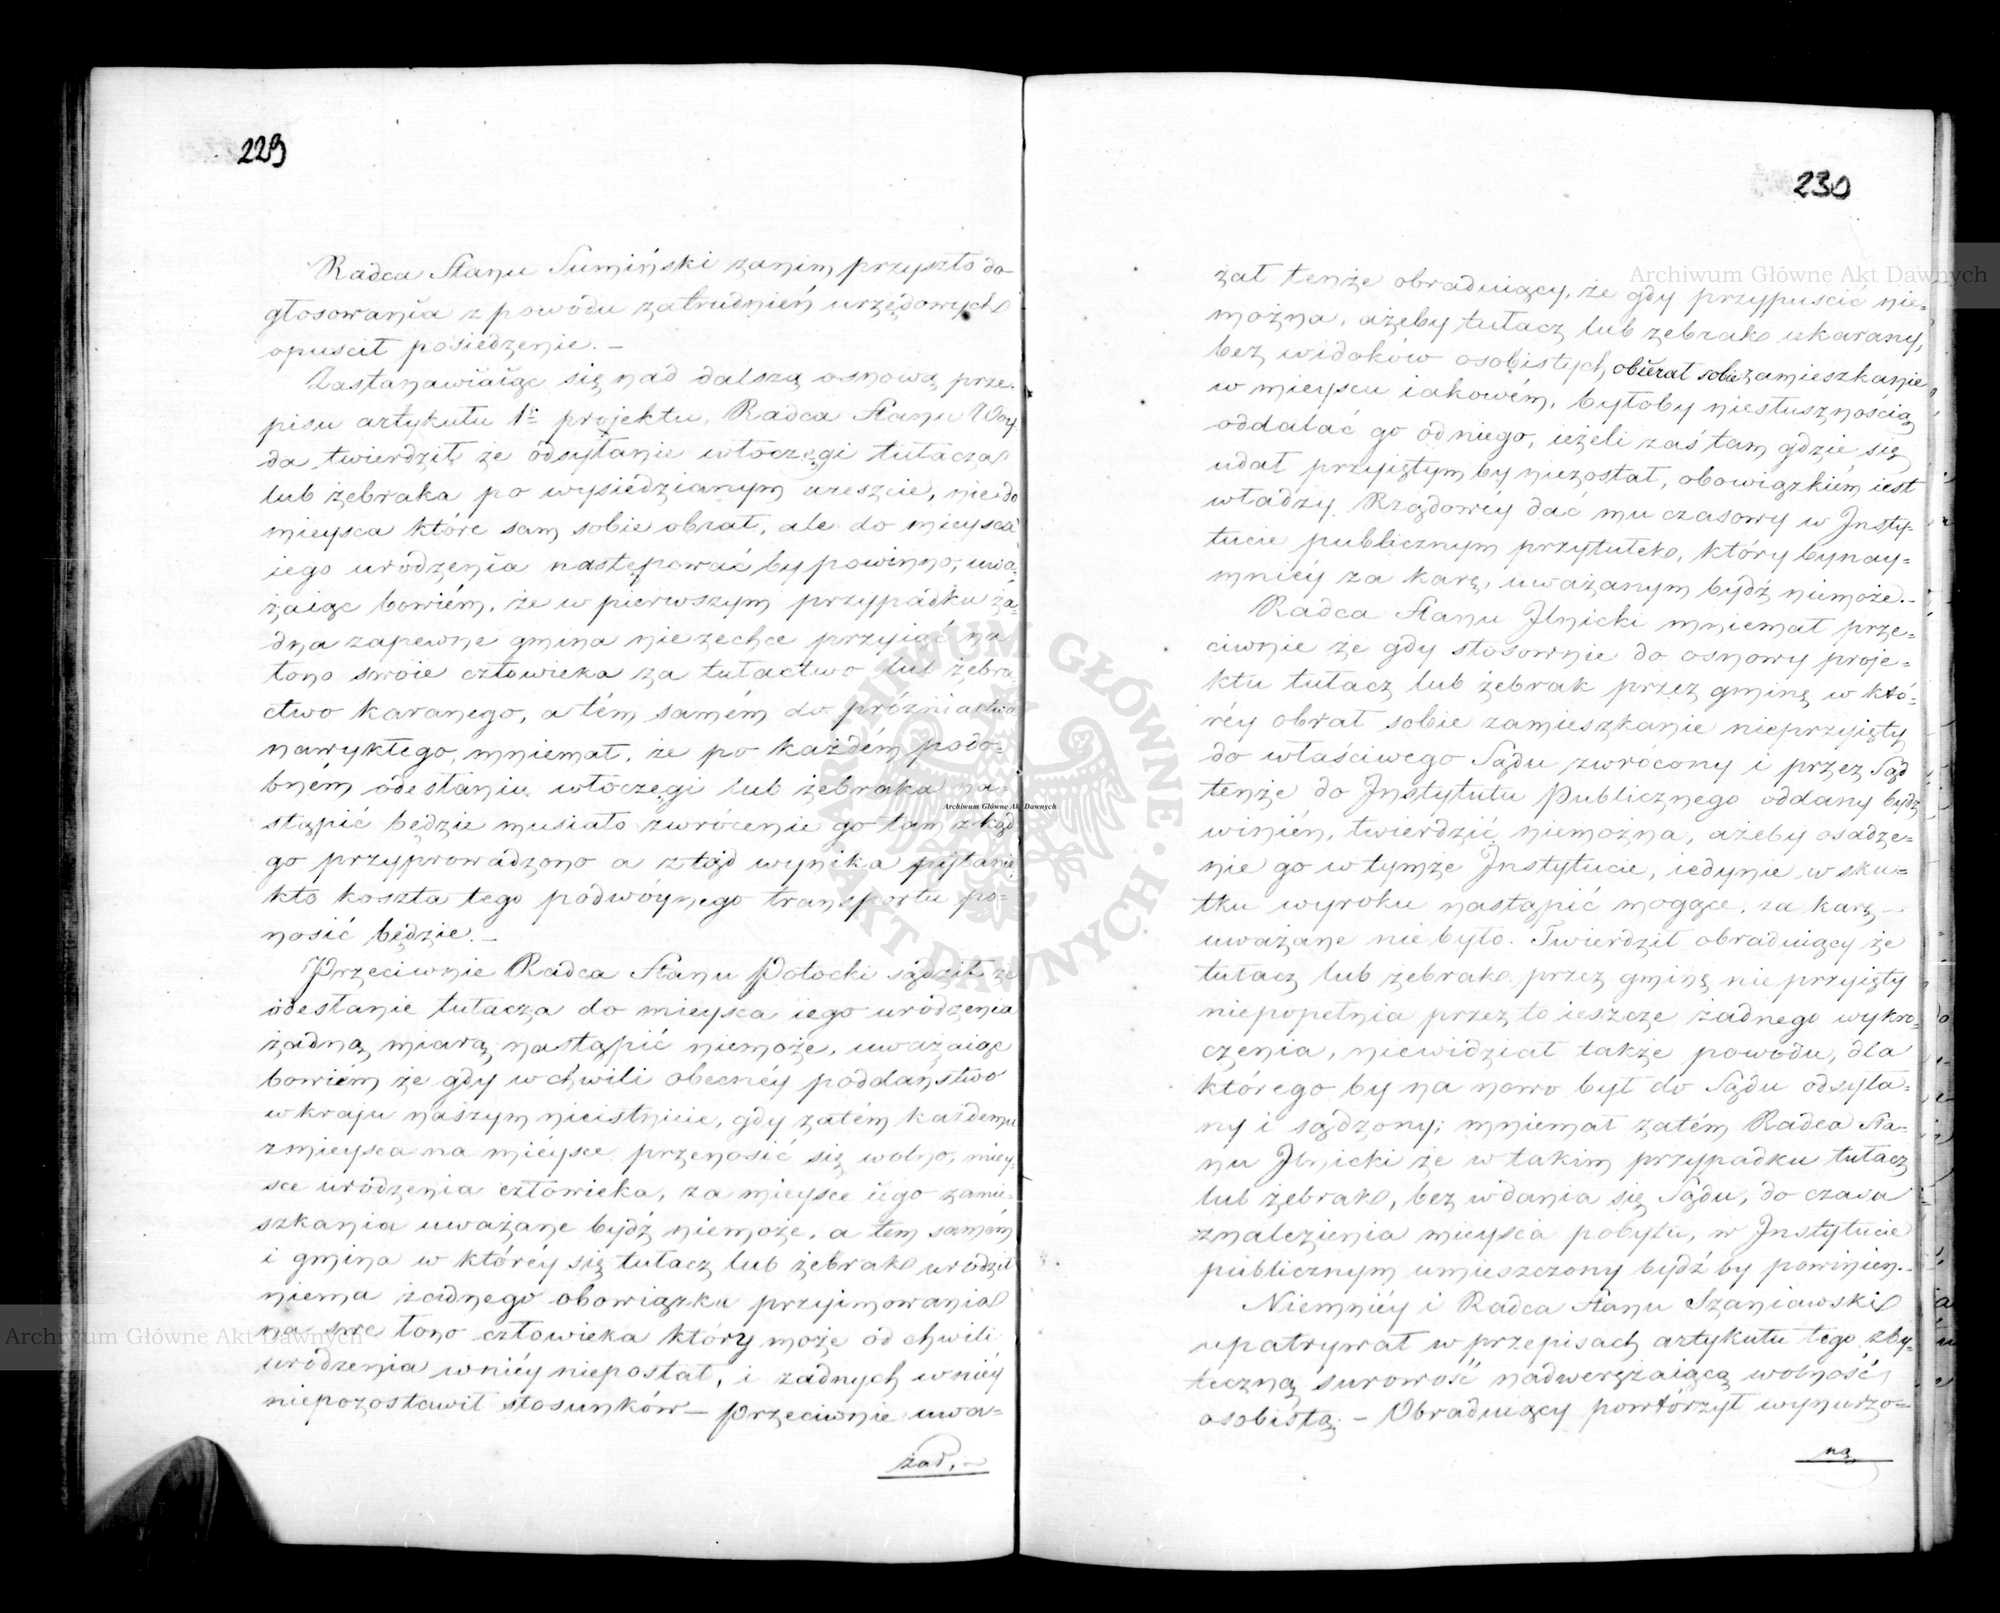 229
Radca Stanu Sumiński zanim przyszło do
głosowania z powodu zatrudnień urzędowych
opuscił posiedzenie. —
Zastanawiaiąc się nad dalszą osnową prze-
pisu artykułu 1º projektu, Radca Stanu Woy
da twierdził że odsyłanie włóczęgi tułacza
lub żebraka po wysiedzianym areszcie, nie do
mieysca które sam sobie obrał, ale do mieysca
iego urodzenia następować by powinno; uwa-
żaiąc bowiém, że w pierwszym przypadku ża-
dna zapewne gmina nie zechce przyiąć na
łono swoie człowieka za tułactwo lub żebra
ctwo karanego, a tém samém do próżniactwa
nawykłego, mniemał, że po każdém podo-
bném odesłaniu włóczęgi lub żebraka na-
stąpić będzie musiało zwrócenie go tam zkąd
go przyprowadzono a ztąd wynika pytanie
kto koszta tego podwóynego transportu po-
nosić będzie. —
Przeciwnie Radca Stanu Potocki sądził że
odesłanie tułacza do mieysca iego urodzenia
żadną miarą nastąpić niemoże, uważaiąc
bowiém że gdy w chwili obecnéy poddaństwo
w kraju naszym nieistnieie, gdy zatém każdemu
z mieysca na mieysce przenosić się wolno, miey-
sce urodzenia człowieka, za mieysce iego zamie-
szkania uważane bydź niemoże, a tem samém
i gmina w któréy się tułacz lub żebrak urodził
niema żadnego obowiązku przyimowania
na swe łono człowieka który może od chwili
urodzenia w niéy niepostał, i żadnych w niéy
niepozostawił stosunków — Przeciwnie uwa-
żał. —
230
żał tenże obraduiący, że gdy przypuscić nie-
można, ażeby tułacz lub żebrak ukarany,
bez widoków osobistych obierał sobie zamieszkanie
w mieyscu iakowém, byłoby niesłusznością
oddalać go od niego, ieżeli zaś tam gdzie się
udał przyiętym by niezostał, obowiązkiém iest
władzy Rządowéy dać mu czasowy w Insty-
tucie publicznym przytułek, który bynay-
mniéy za karę, uważanym bydź niemoże. —
Radca Stanu Ilnicki mniemał prze-
ciwnie że gdy stosownie do osnowy proje-
ktu tułacz lub żebrak przez gminę w któ-
réy obrał sobie zamieszkanie nieprzyięty
do właściwego Sądu zwrócony i przez Sąd
tenże do Instytutu Publicznego oddany bydź
winién, twierdzić niemożna, ażeby osadze-
nie go w tymże Instytucie, iedynie w sku-
tku wyroku nastąpić mogące, za karę —
uważane nie było. Twierdził obraduiący że
tułacz lub żebrak przez gminę nie przyięty
niepopełnia przez to ieszcze żadnego wykro-
czenia, niewidział także powodu, dla
którego by na nowo był do Sądu odsyła-
ny i sądzony; mniemał zatém Radca Sta-
nu Ilnicki że w takim przypadku tułacz
lub żebrak, bez wdania się Sądu, do czasu
znalezienia mieysca pobytu, w Instytucie
publicznym umieszczony bydź by powinien. —
Niemniéy i Radca Stanu Szaniawski
upatrywał w przepisach artykułu tego zby-
teczną surowość nadwerężaiącą wolność
osobistą. — Obraduiący powtórzył wynurzo-
ną
Archiwum Główne Akt Dawnych
Archiwum Główne Akt Dawnych
Archiwum Główne Akt Dawnych
ARCHIWUM GŁÓWNE · AKT DAWNYCH ·